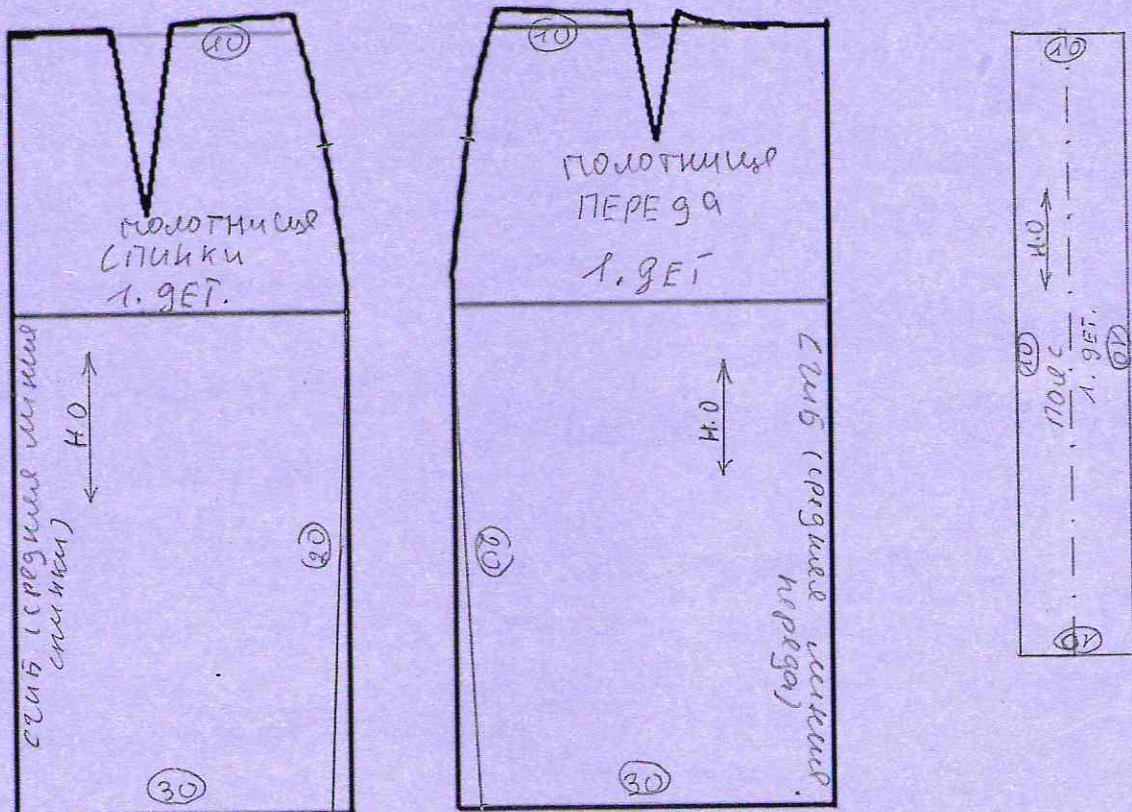 10
полотнище
спинки
1. дет.
сгиб (средняя линия
спинки)
Н.О
20
30
10
полотнище
ПЕРЕДА
1. дет
сгиб (средняя линия
переда)
Н.О
20
30
10
Н.О
10
пояс
1. дет.
10
10